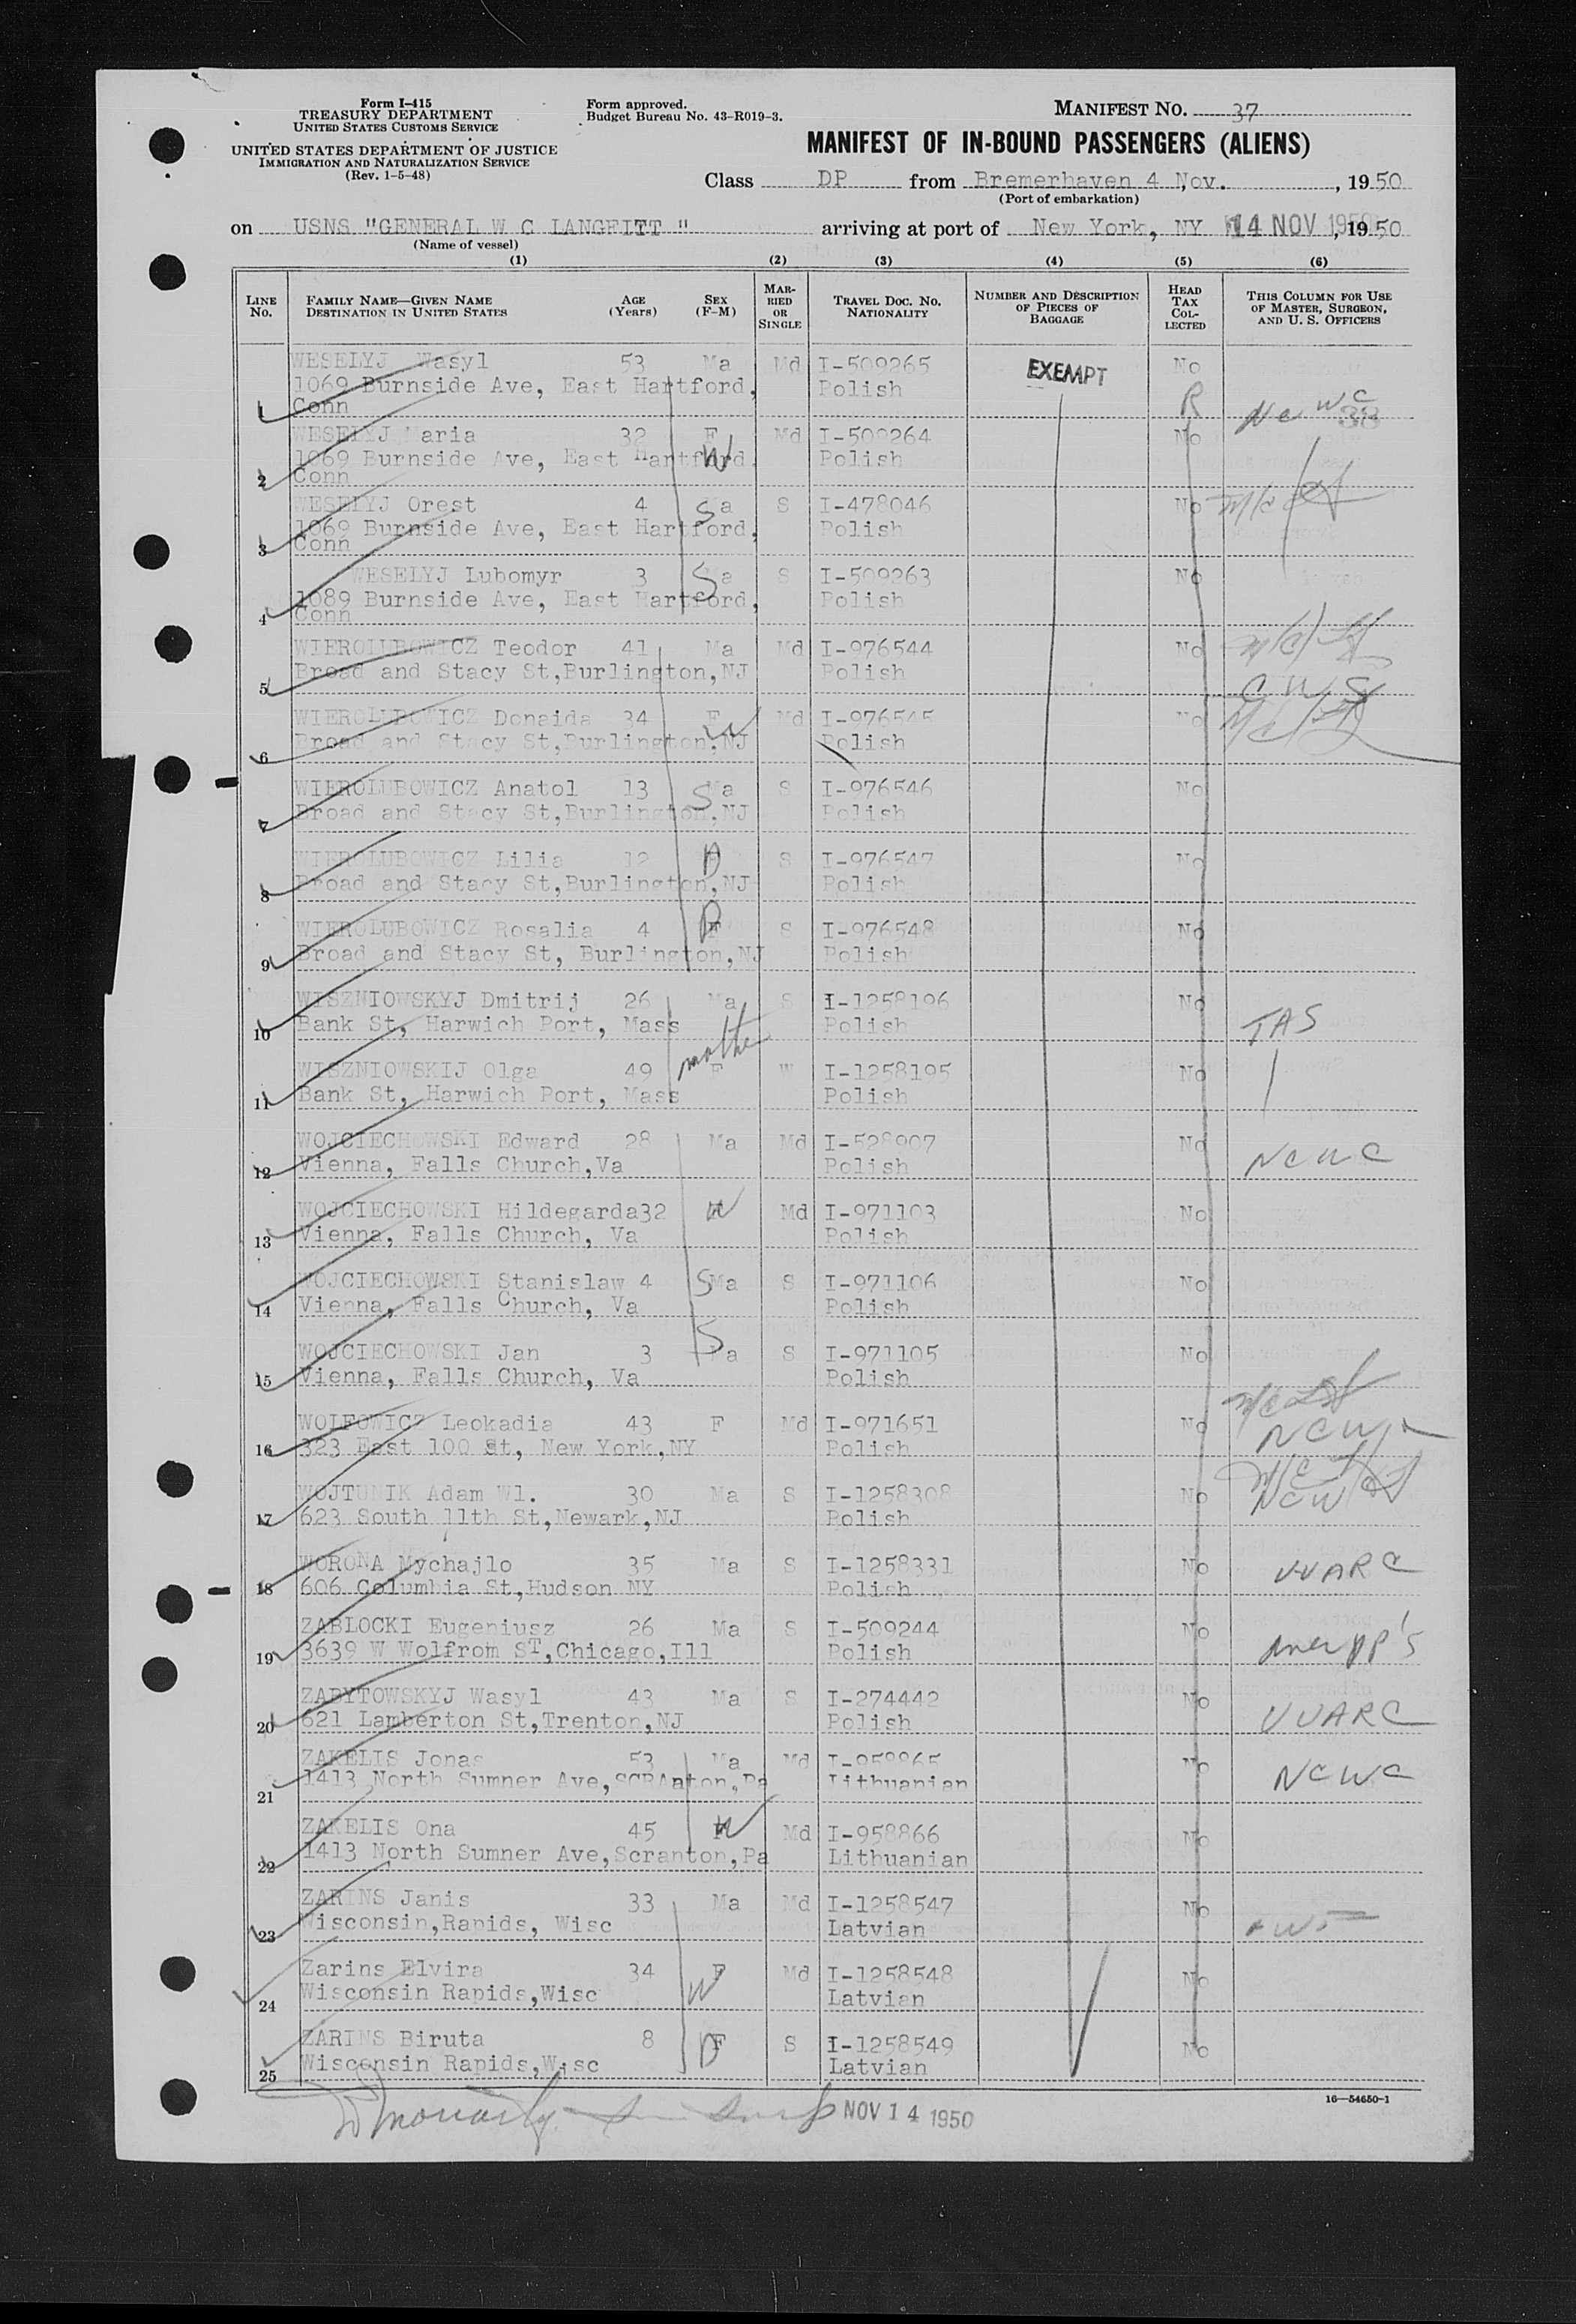 Form I-415
TREASURY DEPARTMENT
UNITED STATES CUSTOMS SERVICE
UNITED STATES DEPARTMENT OF JUSTICE
IMMIGRATION AND NATURALIZATION SERVICE
(Rev. 1-5-48)
Form approved.
Budget Bureau No. 43-R019-3.
MANIFEST NO. 37
MANIFEST OF IN-BOUND PASSENGERS (ALIENS)
Class DP from Bremerhaven 4 Nov. , 19 50
(Port of embarkation)
on USNS "GENERAL W C LANGFITT " arriving at port of New York, NY 14 NOV 1950 , 19 50
(Name of vessel)
(1) (2) (3) (4) (5) (6)
LINE NO. FAMILY NAME—GIVEN NAME DESTINATION IN UNITED STATES AGE (Years) SEX (F-M) MARRIED OR SINGLE TRAVEL DOC. NO. NATIONALITY NUMBER AND DESCRIPTION OF PIECES OF BAGGAGE HEAD TAX COLLECTED THIS COLUMN FOR USE OF MASTER, SURGEON, AND U. S. OFFICERS
WESELYJ Wasyl 53 Ma Md I-509265 EXEMPT No
1069 Burnside Ave, East Hartford, Polish R
1 Conn
WESELYJ Maria 32 F W Md I-509264 No
1069 Burnside Ave, East Hartford, Polish
2 Conn
WESELYJ Orest 4 Ma S S I-478046 No
1069 Burnside Ave, East Hartford, Polish
3 Conn
WESELYJ Lubomyr 3 Ma S S I-509263 No
1089 Burnside Ave, East Hartford, Polish
4 Conn
WIEROLUBOWICZ Teodor 41 Ma Md I-976544 No
5 Broad and Stacy St,Burlington,NJ Polish
CWS
WIEROLUBOWICZ Donaida 34 F W Md I-976545 No
6 Broad and Stacy St,Burlington,NJ Polish
WIEROLUBOWICZ Anatol 13 Ma S S I-976546 No
7 Broad and Stacy St,Burlington,NJ Polish
WIEROLUBOWICZ Lilia 12 D S I-976547 No
8 Broad and Stacy St,Burlington,NJ Polish
WIEROLUBOWICZ Rosalia 4 F D S I-976548 No
9 Broad and Stacy St, Burlington,NJ Polish
WISZNIOWSKYJ Dmitrij 26 Ma S I-1258196 No
10 Bank St, Harwich Port, Mass Polish TAS
mother
WISZNIOWSKIJ Olga 49 F W I-1258195 No
11 Bank St, Harwich Port, Mass Polish
WOJCIECHOWSKI Edward 28 Ma Md I-528907 No
12 Vienna, Falls Church,Va Polish NCWC
WOJCIECHOWSKI Hildegarda32 W Md I-971103 No
13 Vienna, Falls Church, Va Polish
WOJCIECHOWSKI Stanislaw 4 S Ma S I-971106 No
14 Vienna, Falls Church, Va Polish
WOJCIECHOWSKI Jan 3 S Ma S I-971105 No
15 Vienna, Falls Church, Va Polish
WOLFOWICZ Leokadia 43 F Md I-971651 No
16 323 East 100 St, New York,NY Polish
WOJTUNIK Adam Wl. 30 Ma S I-1258308 No NCW
17 623 South 11th St,Newark,NJ Polish
WORONA Mychajlo 35 Ma S I-1258331 No UUARC
18 606 Columbia St,Hudson NY Polish
ZABLOCKI Eugeniusz 26 Ma S I-509244 No
19 3639 W Wolfrom ST,Chicago,Ill Polish
ZABYTOWSKYJ Wasyl 43 Ma S I-274442 No
20 621 Lamberton St,Trenton,NJ Polish UUARC
ZAKELIS Jonas 53 Ma Md I-958865 No
21 1413 North Sumner Ave,SCRAnton,Pa Lithuanian NCWC
ZAKELIS Ona 45 W Md I-958866 No
22 1413 North Sumner Ave,Scranton,Pa Lithuanian
ZARINS Janis 33 Ma Md I-1258547 No
23 Wisconsin,Rapids, Wisc Latvian
Zarins Elvira 34 F W Md I-1258548 No
24 Wisconsin Rapids,Wisc Latvian
ZARINS Biruta 8 F D S I-1258549 No
25 Wisconsin Rapids,Wisc Latvian
16—54650-1
NOV 14 1950